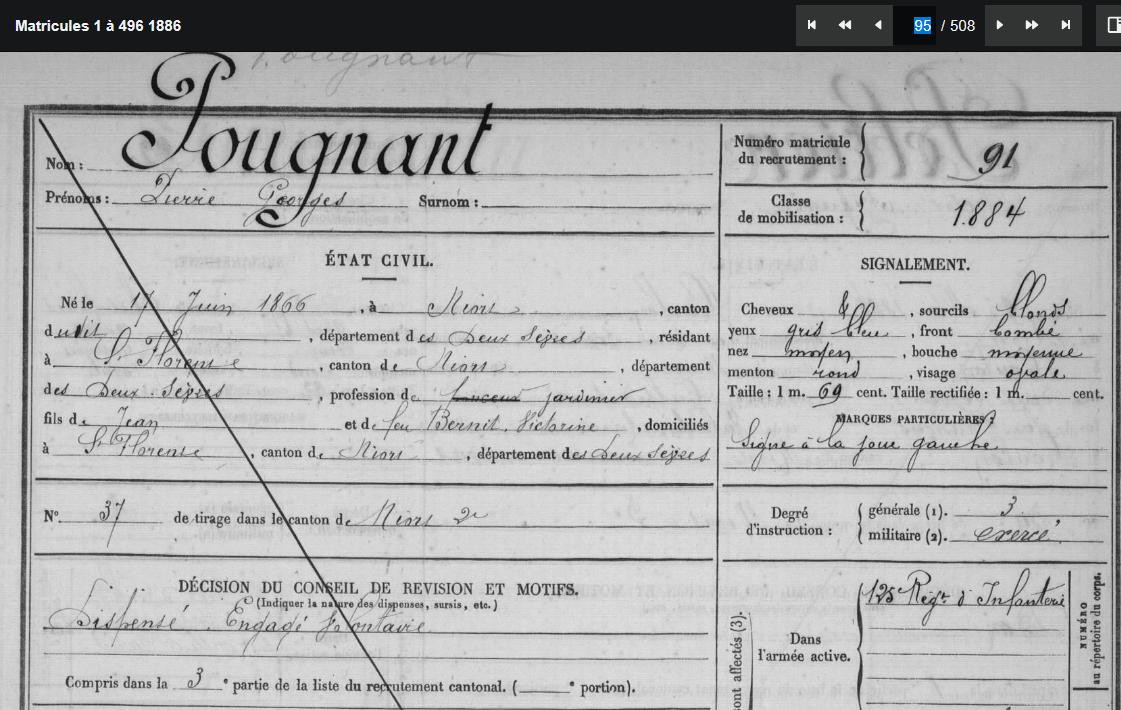 Matricules 1 à 496 1886
95 / 508
Pougnant
Nom : Pougnant
Prénoms : Pierre Georges Surnom :
Numéro matricule du recrutement : 91
Classe de mobilisation : 1884
ÉTAT CIVIL.
Né le 17 Juin 1866, à Niort, canton
dudit, département des Deux Sèvres, résidant
à St Florent, canton de Niort, département
des Deux-Sèvres, profession de jardinier
fils de Jean et de feu Victorine, domiciliés
à St Florent, canton de Niort, département des Deux Sèvres
SIGNALEMENT.
Cheveux et, sourcils blonds
yeux gris bleu, front bombé
nez moyen, bouche moyenne
menton rond, visage ovale
Taille : 1 m. 69 cent. Taille rectifiée : 1 m. cent.
MARQUES PARTICULIÈRES :
Signe à la joue gauche.
No 37 de tirage dans le canton de Niort 2e
Degré d'instruction : générale (1). 3
militaire (2). exercé
DÉCISION DU CONSEIL DE REVISION ET MOTIFS.
(Indiquer la nature des dispenses, sursis, etc.)
Dispensé. Engagé Volontaire
Compris dans la 3e partie de la liste du recrutement cantonal. ( e portion).
sont affectés (3).
Dans l'armée active.
125 Régt d'Infanterie
NUMÉRO
au répertoire du corps.